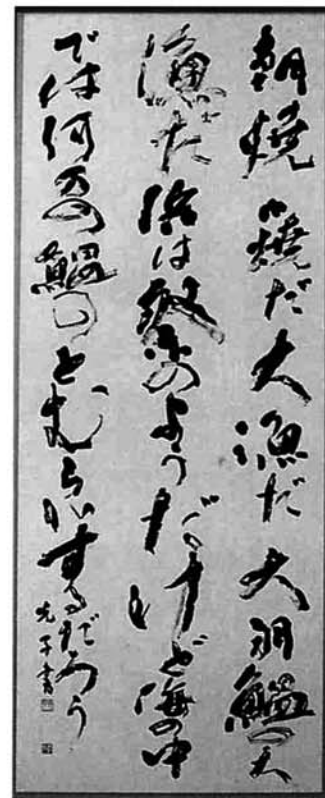 朝焼小焼だ大漁だ大羽鰮の大
漁だ浜は祭のようだけど海の中
では何万の鰮のとむらいするだろう
光子書